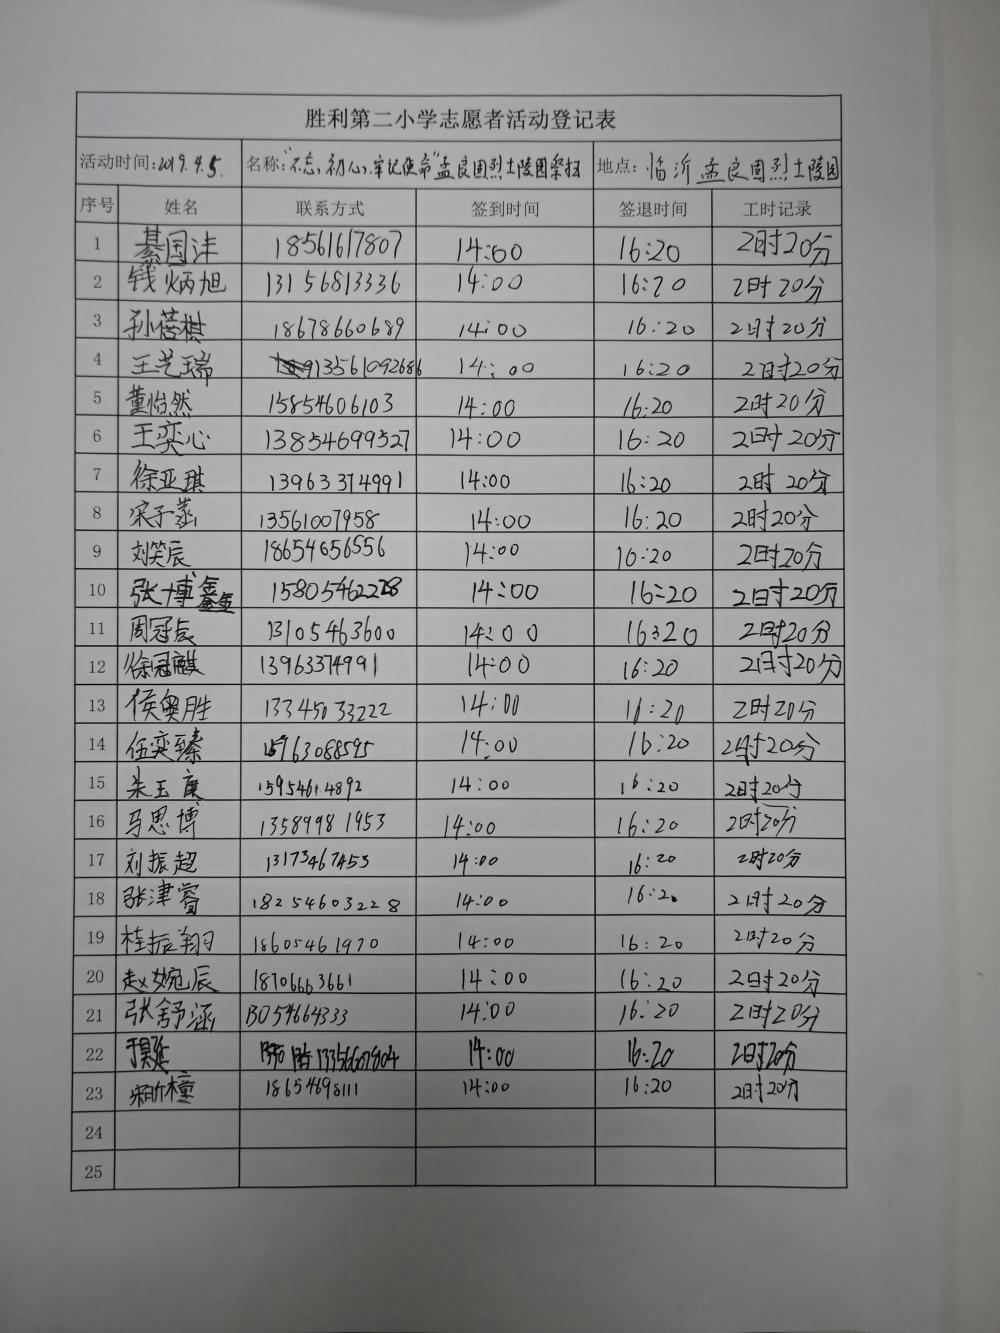 胜利第二小学志愿者活动登记表
活动时间:2019.4.5. 名称:“不忘初心,牢记使命”孟良固烈士陵园祭扫 地点:临沂孟良固烈士陵园
序号 姓名 联系方式 签到时间 签退时间 工时记录
1 綦国沣 18561617807 14:00 16:20 2时20分
2 钱炳旭 13156813336 14:00 16:20 2时20分
3 孙蓓棋 18678660689 14:00 16:20 2时20分
4 王艺瑞 13561092686 14:00 16:20 2时20分
5 董怡然 15854606103 14:00 16:20 2时20分
6 王奕心 13854699527 14:00 16:20 2时20分
7 徐亚琪 13963374991 14:00 16:20 2时20分
8 宋子菡 13561007958 14:00 16:20 2时20分
9 刘笑辰 18654656556 14:00 16:20 2时20分
10 张博鑫 15805462228 14:00 16:20 2时20分
11 周冠辰 13105463600 14:00 16:20 2时20分
12 徐冠麒 13963374991 14:00 16:20 2时20分
13 侯奥胜 13345033222 14:00 16:20 2时20分
14 伍奕臻 15963088595 14:00 16:20 2时20分
15 朱玉康 15954614892 14:00 16:20 2时20分
16 马思博 13589981953 14:00 16:20 2时20分
17 刘振超 13173467453 14:00 16:20 2时20分
18 张津睿 18254603228 14:00 16:20 2时20分
19 桂振翔 18605461970 14:00 16:20 2时20分
20 赵婉辰 18706663661 14:00 16:20 2时20分
21 张舒涵 13054664333 14:00 16:20 2时20分
22 13356607804 14:00 16:20 2时20分
23 宋昕橦 18654698111 14:00 16:20 2时20分
24
25